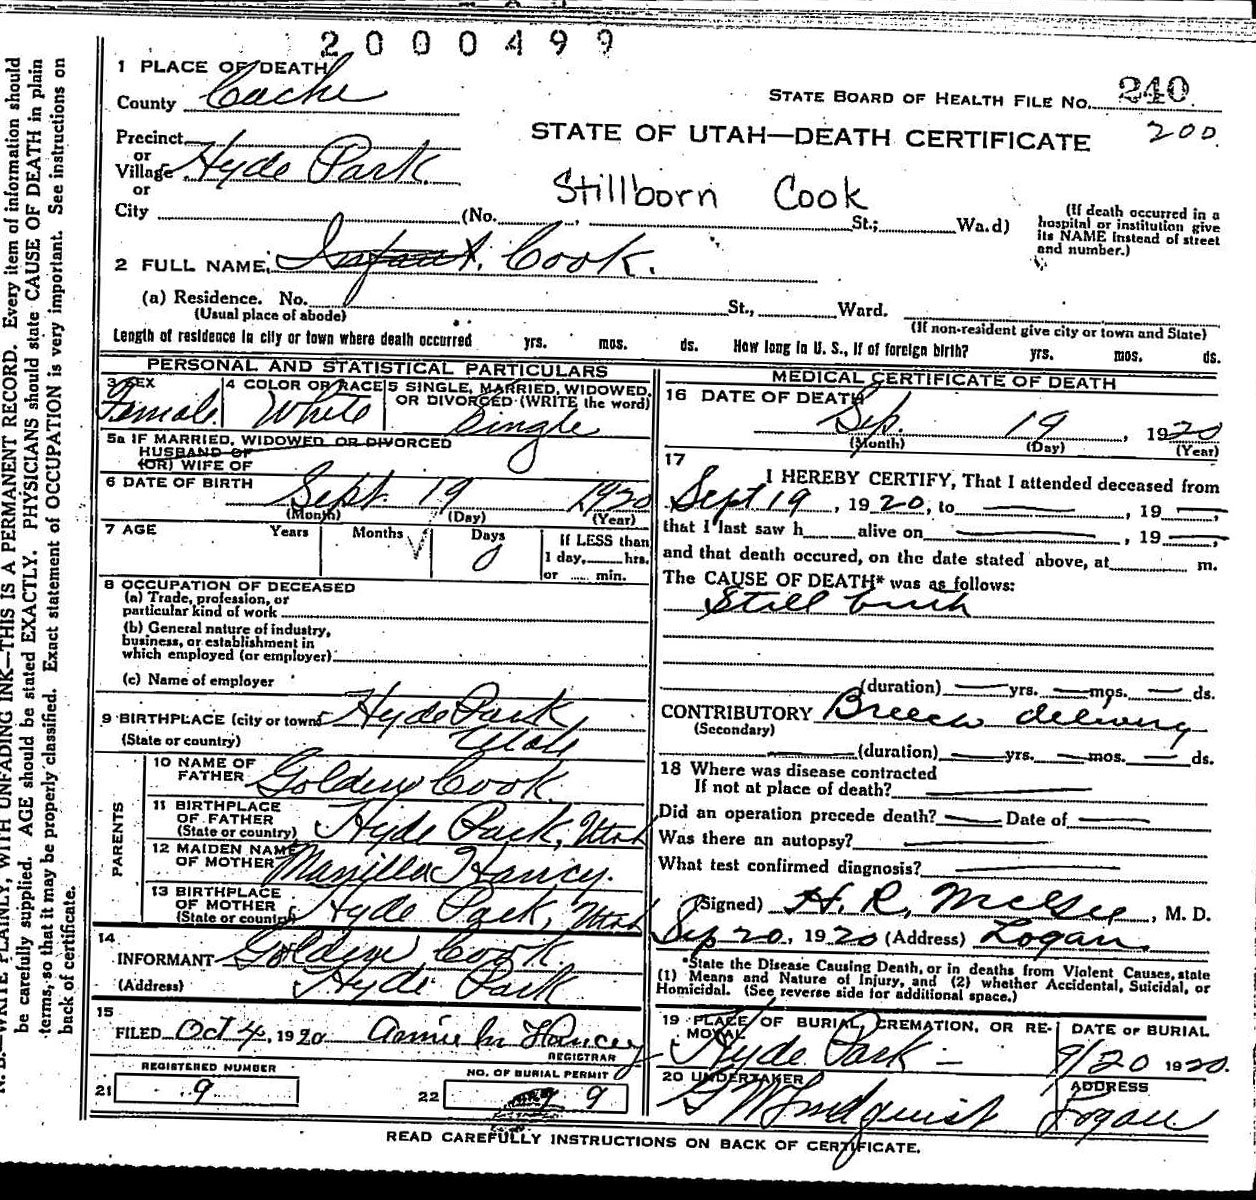 2000499
1 PLACE OF DEATH
County Cache
STATE BOARD OF HEALTH FILE NO. 240
200.
Precinct
or
Village Hyde Park
or
City (No. St.; Wa.d)
STATE OF UTAH—DEATH CERTIFICATE
Stillborn Cook
(If death occurred in a
hospital or institution give
its NAME instead of street
and number.)
2 FULL NAME, Infant. Cook.
(a) Residence. No. St., Ward.
(Usual place of abode)
(If non-resident give city or town and State)
Length of residence in city or town where death occurred yrs. mos. ds. How long in U. S., if of foreign birth? yrs. mos. ds.
PERSONAL AND STATISTICAL PARTICULARS
3 SEX
Female
4 COLOR OR RACE
White
5 SINGLE, MARRIED, WIDOWED,
OR DIVORCED (WRITE the word)
Single
5a IF MARRIED, WIDOWED OR DIVORCED
HUSBAND OF
(OR) WIFE OF
6 DATE OF BIRTH
Sept. 19 1920
(Month) (Day) (Year)
7 AGE Years Months Days If LESS than
1 day, hrs.
or min.
0
8 OCCUPATION OF DECEASED
(a) Trade, profession, or
particular kind of work
(b) General nature of industry,
business, or establishment in
which employed (or employer)
(c) Name of employer
9 BIRTHPLACE (city or town) Hyde Park,
(State or country) Utah
PARENTS
10 NAME OF
FATHER Golden Cook
11 BIRTHPLACE
OF FATHER
(State or country) Hyde Park, Utah
12 MAIDEN NAME
OF MOTHER Manilla Hancy.
13 BIRTHPLACE
OF MOTHER
(State or country) Hyde Park, Utah
14
INFORMANT Golden Cook
(Address) Hyde Park
15
FILED Oct 4, 1920 Annie M Hancey
REGISTRAR
REGISTERED NUMBER
21 9
NO. OF BURIAL PERMIT
22 9 9
MEDICAL CERTIFICATE OF DEATH
16 DATE OF DEATH
Sep. 19, 1920
(Month) (Day) (Year)
17
I HEREBY CERTIFY, That I attended deceased from
Sept 19, 1920, to , 19 ,
that I last saw h alive on , 19 ,
and that death occured, on the date stated above, at m.
The CAUSE OF DEATH* was as follows:
Still birth
(duration) yrs. mos. ds.
CONTRIBUTORY Breech delivery
(Secondary)
(duration) yrs. mos. ds.
18 Where was disease contracted
If not at place of death?
Did an operation precede death? Date of
Was there an autopsy?
What test confirmed diagnosis?
(Signed) H. R. McGee, M. D.
Sep 20, 1920 (Address) Logan.
*State the Disease Causing Death, or in deaths from Violent Causes, state
(1) Means and Nature of Injury, and (2) whether Accidental, Suicidal, or
Homicidal. (See reverse side for additional space.)
19 PLACE OF BURIAL, CREMATION, OR RE-
MOVAL
Hyde Park
DATE OF BURIAL
9/20 1920.
20 UNDERTAKER
G W Lindquist
ADDRESS
Logan
READ CAREFULLY INSTRUCTIONS ON BACK OF CERTIFICATE.
WRITE PLAINLY, WITH UNFADING INK—THIS IS A PERMANENT RECORD. Every item of information should
be carefully supplied. AGE should be stated EXACTLY. PHYSICIANS should state CAUSE OF DEATH in plain
terms, so that it may be properly classified. Exact statement of OCCUPATION is very important. See instructions on
back of certificate.